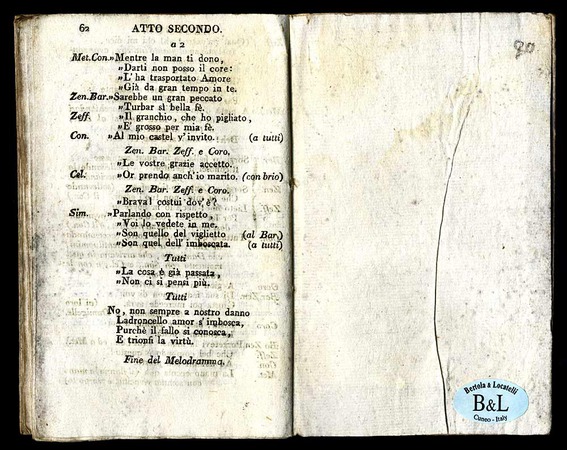 62 ATTO SECONDO.
a 2
Met.Con.„Mentre la man ti dono,
„Darti non posso il core:
„L' ha trasportato Amore
„Già da gran tempo in te.
Zen.Bar.„Sarebbe un gran peccato
„Turbar sì bella fè.
Zeff. „Il granchio, che ho pigliato,
„E' grosso per mia fè.
Con. „Al mio castel v' invito. (a tutti)
Zen. Bar. Zeff. e Coro.
„Le vostre grazie accetto.
Cel. „Or prendo anch' io marito. (con brio)
Zen. Bar. Zeff. e Coro.
„Brava! costui dov' è?
Sim. „Parlando con rispetto,
„Voi lo vedete in me.
„Son quello del viglietto (al Bar.)
„Son quel dell' imboscata. (a tutti)
Tutti
„La cosa è già passata,
„Non ci si pensi più.
Tutti
No, non sempre a nostro danno
Ladroncello amor s' imbosca,
Purchè il fallo si conosca,
E trionfi la virtù.
Fine del Melodramma.
Bertola & Locatelli
B&L
Cuneo - Italy